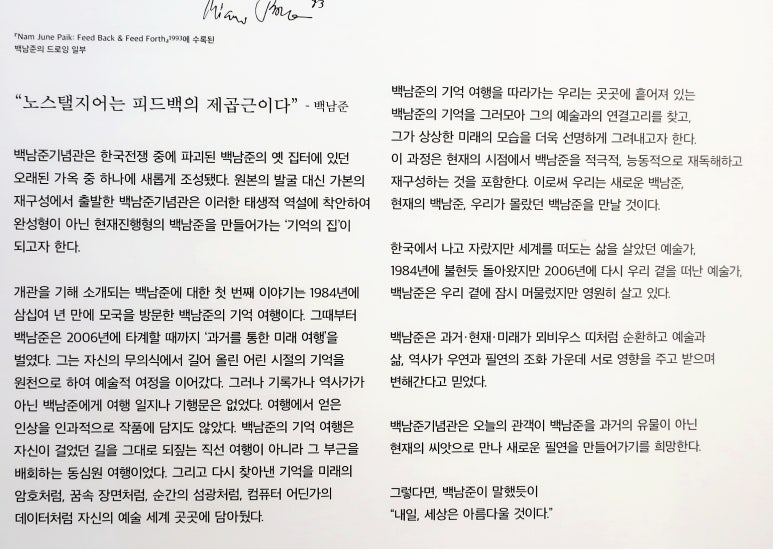 『Nam June Paik: Feed Back & Feed Forth』1993에 수록된
백남준의 드로잉 일부
“노스탤지어는 피드백의 제곱근이다” - 백남준
백남준기념관은 한국전쟁 중에 파괴된 백남준의 옛 집터에 있던
오래된 가옥 중 하나에 새롭게 조성됐다. 원본의 발굴 대신 가본의
재구성에서 출발한 백남준기념관은 이러한 태생적 역설에 착안하여
완성형이 아닌 현재진행형의 백남준을 만들어가는 ‘기억의 집’이
되고자 한다.
개관을 기해 소개되는 백남준에 대한 첫 번째 이야기는 1984년에
삼십여 년 만에 모국을 방문한 백남준의 기억 여행이다. 그때부터
백남준은 2006년에 타계할 때까지 ‘과거를 통한 미래 여행’을
벌였다. 그는 자신의 무의식에서 길어 올린 어린 시절의 기억을
원천으로 하여 예술적 여정을 이어갔다. 그러나 기록가나 역사가가
아닌 백남준에게 여행 일지나 기행문은 없었다. 여행에서 얻은
인상을 인과적으로 작품에 담지도 않았다. 백남준의 기억 여행은
자신이 걸었던 길을 그대로 되짚는 직선 여행이 아니라 그 부근을
배회하는 동심원 여행이었다. 그리고 다시 찾아낸 기억을 미래의
암호처럼, 꿈속 장면처럼, 순간의 섬광처럼, 컴퓨터 어딘가의
데이터처럼 자신의 예술 세계 곳곳에 담아뒀다.
백남준의 기억 여행을 따라가는 우리는 곳곳에 흩어져 있는
백남준의 기억을 그러모아 그의 예술과의 연결고리를 찾고,
그가 상상한 미래의 모습을 더욱 선명하게 그려내고자 한다.
이 과정은 현재의 시점에서 백남준을 적극적, 능동적으로 재독해하고
재구성하는 것을 포함한다. 이로써 우리는 새로운 백남준,
현재의 백남준, 우리가 몰랐던 백남준을 만날 것이다.
한국에서 나고 자랐지만 세계를 떠도는 삶을 살았던 예술가,
1984년에 불현듯 돌아왔지만 2006년에 다시 우리 곁을 떠난 예술가,
백남준은 우리 곁에 잠시 머물렀지만 영원히 살고 있다.
백남준은 과거·현재·미래가 뫼비우스 띠처럼 순환하고 예술과
삶, 역사가 우연과 필연의 조화 가운데 서로 영향을 주고 받으며
변해간다고 믿었다.
백남준기념관은 오늘의 관객이 백남준을 과거의 유물이 아닌
현재의 씨앗으로 만나 새로운 필연을 만들어가기를 희망한다.
그렇다면, 백남준이 말했듯이
“내일, 세상은 아름다울 것이다.”